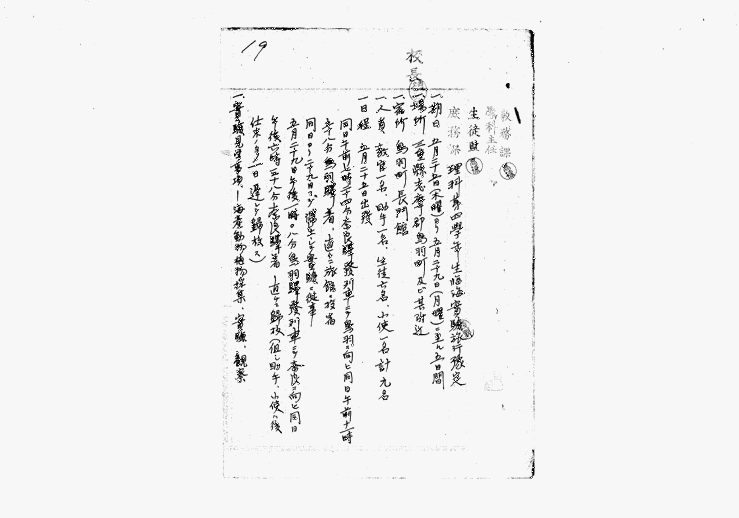 19
校長
教務課
理科主任
生徒監
庶務課
理科第四學年生臨海實驗旅行豫定
一、期日 五月二十五日(木曜)ヨリ五月二十九日(月曜)ニ至ル五日間
一、場所 三重縣志摩郡鳥羽町及ビ其附近
一、宿所 鳥羽町長門館
一、人員 教官一名、助手一名、生徒六名、小使一名計九名
一、日程 五月二十五日出發
同日午前七時二十四分奈良驛發列車ニテ鳥羽ニ向ヒ同日午前十一時
五十八分鳥羽驛着、直ニ旅館ニ投宿
同日ヨリ二十九日マデ滞在シテ實驗ニ從事
五月二十九日午後一時〇八分鳥羽驛發列車ニテ奈良ニ向ヒ同日
午後六時三十八分奈良驛着 直ニ歸校(但シ助手、小使ハ後
仕末ノタメ一日遲レテ歸校ス)
一、實驗見學事項、海産動物植物採集、實驗、觀察